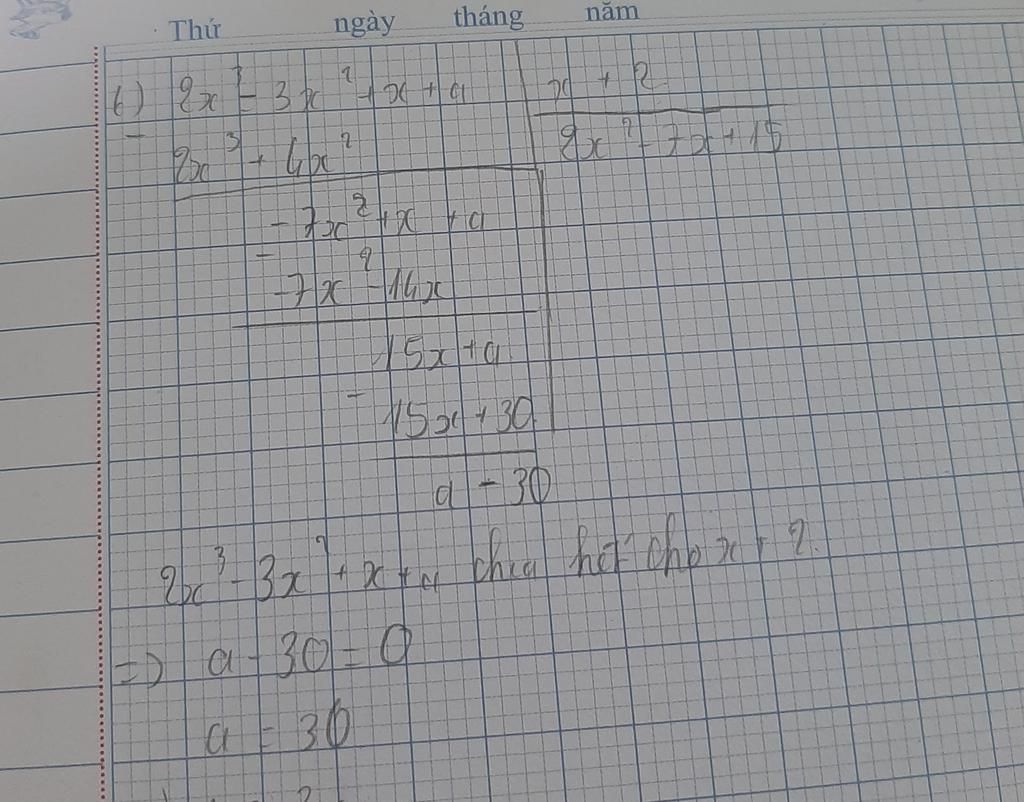 Thứ ngày tháng năm
b) 2x³ - 3x² + x + a | x + 2
- 2x³ + 4x² | 2x² - 7x + 15
- 7x² + x + a
- -7x² - 14x
15x + a
- 15x + 30
a - 30
2x³ - 3x² + x + a chia hết cho x + 2.
=> a - 30 = 0
a = 30